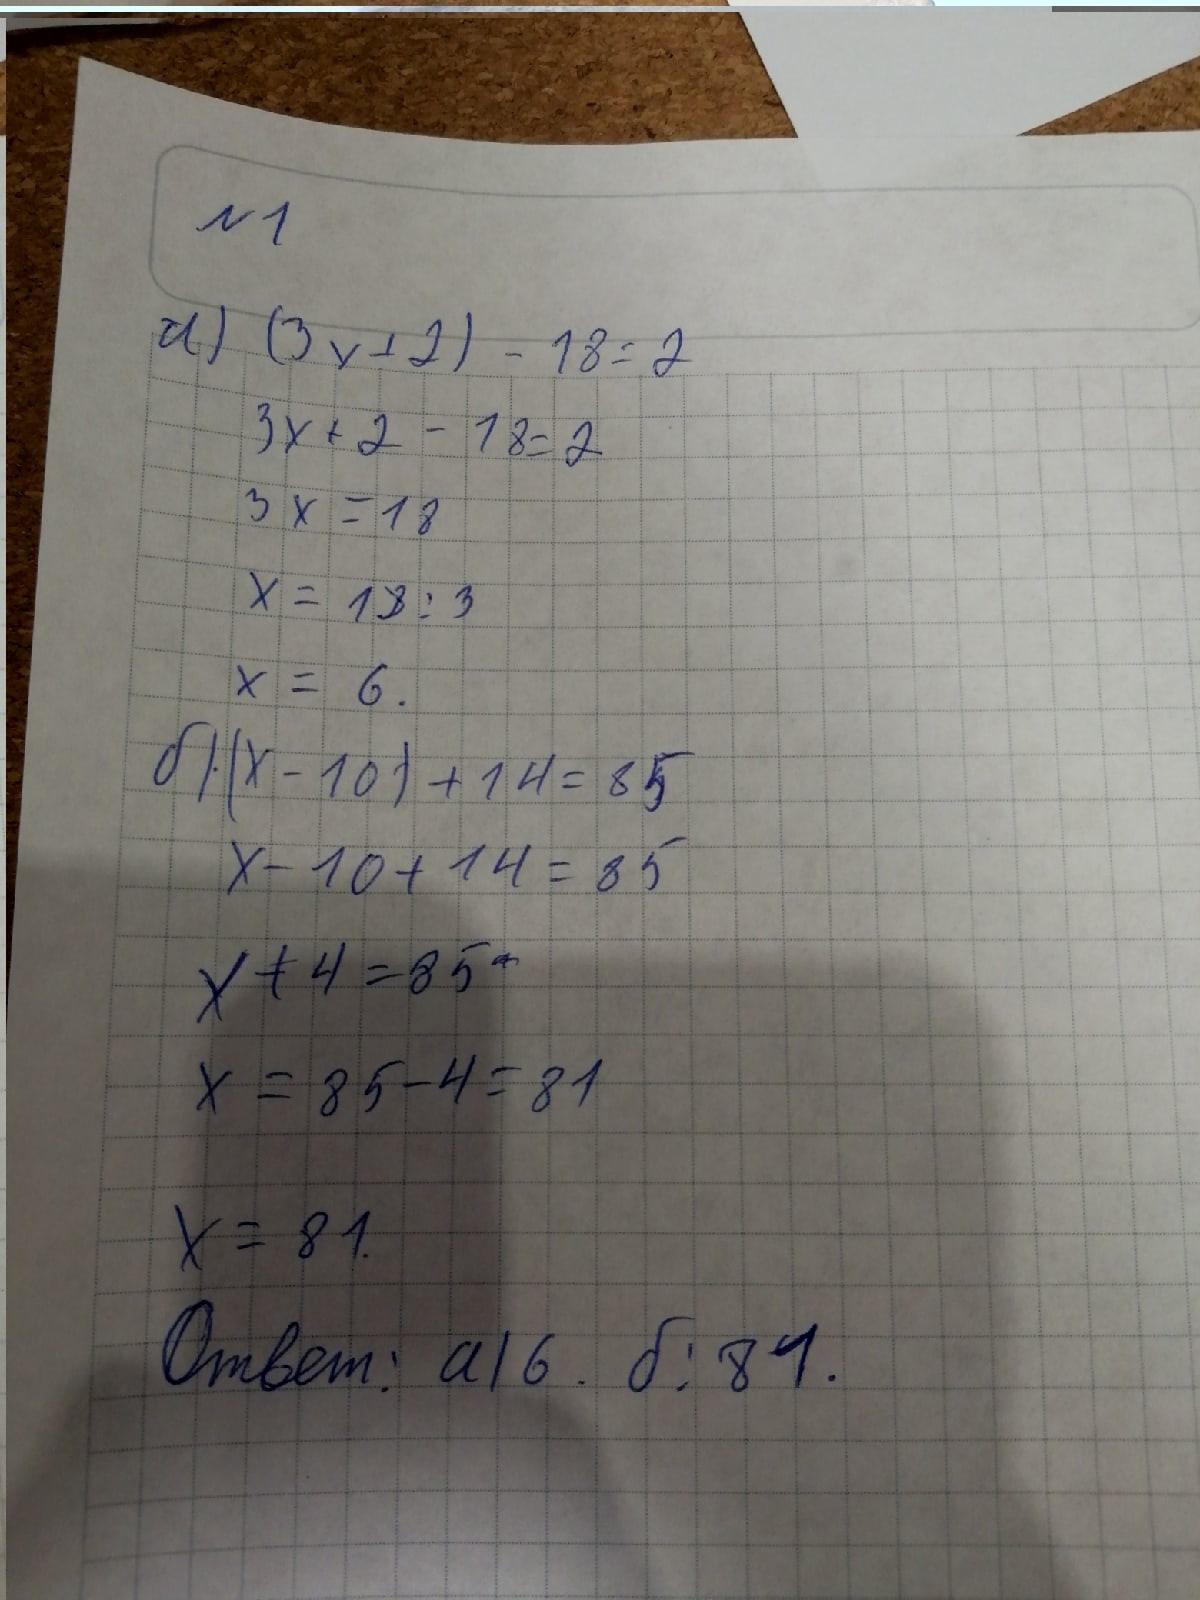 №1
а) (3x+2) - 18 = 2
3x + 2 - 18 = 2
3x = 18
x = 18 : 3
x = 6.
б). (x - 10) + 14 = 85
x - 10 + 14 = 85
x + 4 = 85
x = 85 - 4 = 81
x = 81.
Ответ: а) 6. б: 81.